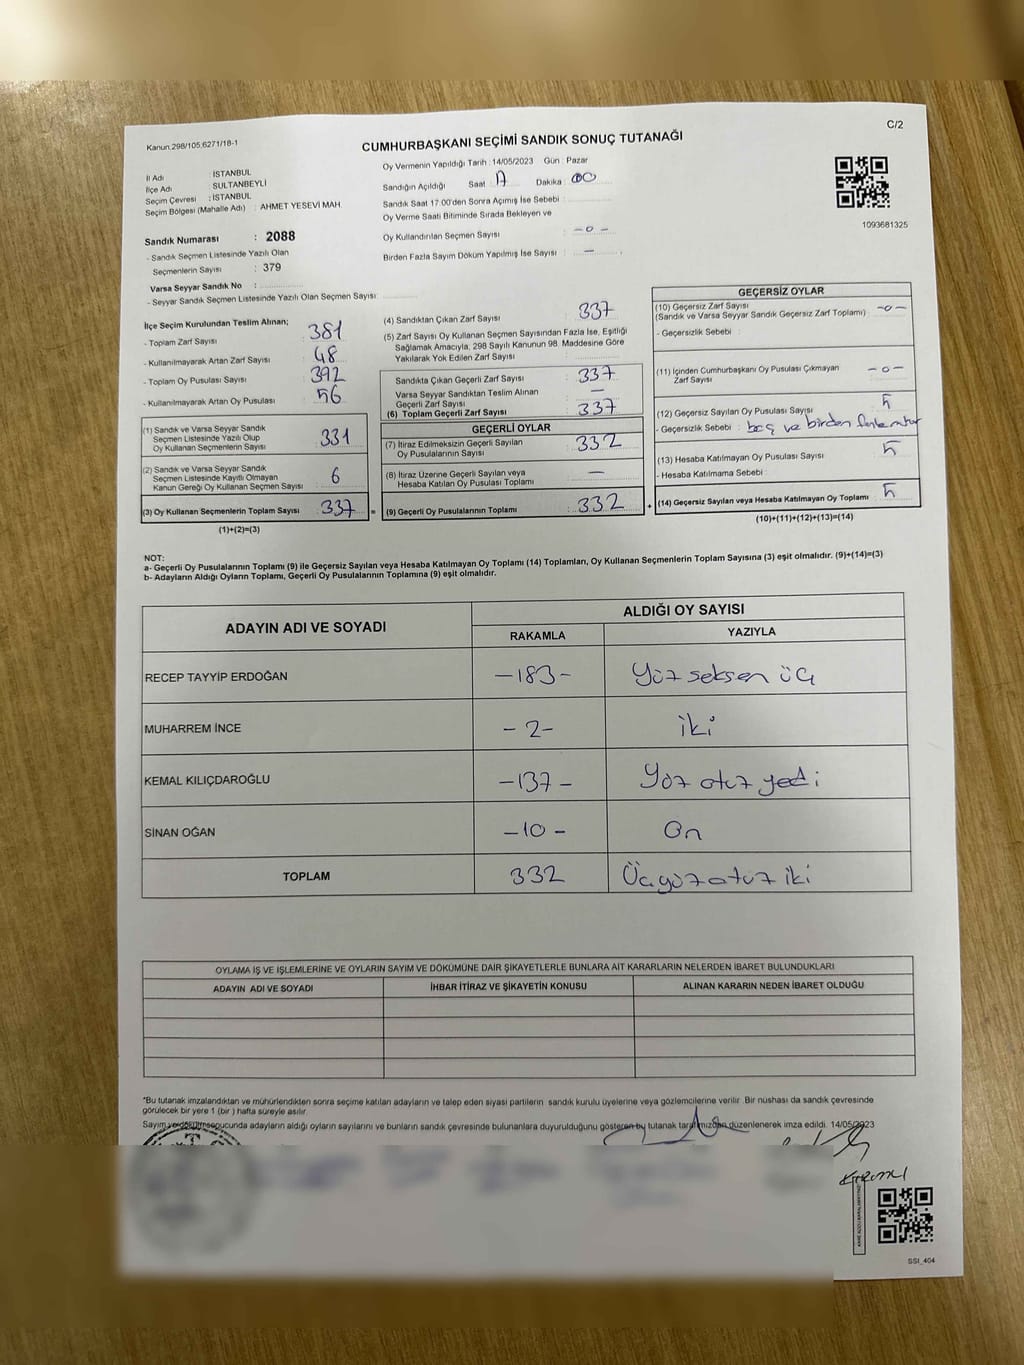 C/2
Kanun:298/105,6271/18-1
CUMHURBAŞKANI SEÇİMİ SANDIK SONUÇ TUTANAĞI
İl Adı : İSTANBUL
İlçe Adı : SULTANBEYLİ
Seçim Çevresi : İSTANBUL
Seçim Bölgesi (Mahalle Adı) : AHMET YESEVİ MAH.
Oy Vermenin Yapıldığı Tarih : 14/05/2023 Gün : Pazar
Sandığın Açıldığı Saat Dakika : 00
Sandık Saat 17:00'den Sonra Açımış İse Sebebi :
Oy Verme Saati Bitiminde Sırada Bekleyen ve
Oy Kullandırılan Seçmen Sayısı : -0-
Birden Fazla Sayım Döküm Yapılmış İse Sayısı : -
1093681325
Sandık Numarası : 2088
- Sandık Seçmen Listesinde Yazılı Olan
Seçmenlerin Sayısı : 379
Varsa Seyyar Sandık No :
- Seyyar Sandık Seçmen Listesinde Yazılı Olan Seçmen Sayısı :
İlçe Seçim Kurulundan Teslim Alınan;
- Toplam Zarf Sayısı : 381
- Kullanılmayarak Artan Zarf Sayısı : 48
- Toplam Oy Pusulası Sayısı : 392
- Kullanılmayarak Artan Oy Pusulası : 56
(1) Sandık ve Varsa Seyyar Sandık
Seçmen Listesinde Yazılı Olup
Oy Kullanan Seçmenlerin Sayısı : 331
(2) Sandık ve Varsa Seyyar Sandık
Seçmen Listesinde Kayıtlı Olmayan
Kanun Gereği Oy Kullanan Seçmen Sayısı : 6
(3) Oy Kullanan Seçmenlerin Toplam Sayısı : 337 =
(1)+(2)=(3)
(4) Sandıktan Çıkan Zarf Sayısı : 337
(5) Zarf Sayısı Oy Kullanan Seçmen Sayısından Fazla İse, Eşitliği
Sağlamak Amacıyla, 298 Sayılı Kanunun 98. Maddesine Göre
Yakılarak Yok Edilen Zarf Sayısı :
Sandıkta Çıkan Geçerli Zarf Sayısı : 337
Varsa Seyyar Sandıktan Teslim Alınan
Geçerli Zarf Sayısı : -
(6) Toplam Geçerli Zarf Sayısı : 337
GEÇERLİ OYLAR
(7) İtiraz Edilmeksizin Geçerli Sayılan
Oy Pusulalarının Sayısı : 332
(8) İtiraz Üzerine Geçerli Sayılan veya
Hesaba Katılan Oy Pusulası Toplamı : -
(9) Geçerli Oy Pusulalarının Toplamı : 332 +
GEÇERSİZ OYLAR
(10) Geçersiz Zarf Sayısı
(Sandık ve Varsa Seyyar Sandık Geçersiz Zarf Toplamı) : -0-
- Geçersizlik Sebebi :
(11) İçinden Cumhurbaşkanı Oy Pusulası Çıkmayan
Zarf Sayısı : -0-
(12) Geçersiz Sayılan Oy Pusulası Sayısı : 5
- Geçersizlik Sebebi : boş ve birden
(13) Hesaba Katılmayan Oy Pusulası Sayısı : 5
- Hesaba Katılmama Sebebi :
(14) Geçersiz Sayılan veya Hesaba Katılmayan Oy Toplamı : 5
(10)+(11)+(12)+(13)=(14)
NOT:
a- Geçerli Oy Pusulalarının Toplamı (9) ile Geçersiz Sayılan veya Hesaba Katılmayan Oy Toplamı (14) Toplamları, Oy Kullanan Seçmenlerin Toplam Sayısına (3) eşit olmalıdır. (9)+(14)=(3)
b- Adayların Aldığı Oyların Toplamı, Geçerli Oy Pusulalarının Toplamına (9) eşit olmalıdır.
ADAYIN ADI VE SOYADI
ALDIĞI OY SAYISI
RAKAMLA YAZIYLA
RECEP TAYYİP ERDOĞAN -183- Yüz seksen üç
MUHARREM İNCE -2- iki
KEMAL KILIÇDAROĞLU -137- Yüz otuz yedi
SİNAN OĞAN -10- On
TOPLAM 332 Üçyüz otuz iki
OYLAMA İŞ VE İŞLEMLERİNE VE OYLARIN SAYIM VE DÖKÜMÜNE DAİR ŞİKAYETLERLE BUNLARA AİT KARARLARIN NELERDEN İBARET BULUNDUKLARI
ADAYIN ADI VE SOYADI İHBAR İTİRAZ VE ŞİKAYETİN KONUSU ALINAN KARARIN NEDEN İBARET OLDUĞU
*Bu tutanak imzalandıktan ve mühürlendikten sonra seçime katılan adayların ve talep eden siyasi partilerin sandık kurulu üyelerine veya gözlemcilerine verilir. Bir nüshası da sandık çevresinde
görülecek bir yere 1 (bir) hafta süreyle asılır.
Sayım ve döküm sonucunda adayların aldığı oyların sayılarını ve bunların sandık çevresinde bulunanlara duyurulduğunu gösteren bu tutanak tarafımızdan düzenlenerek imza edildi. 14/05/2023
SSI_404